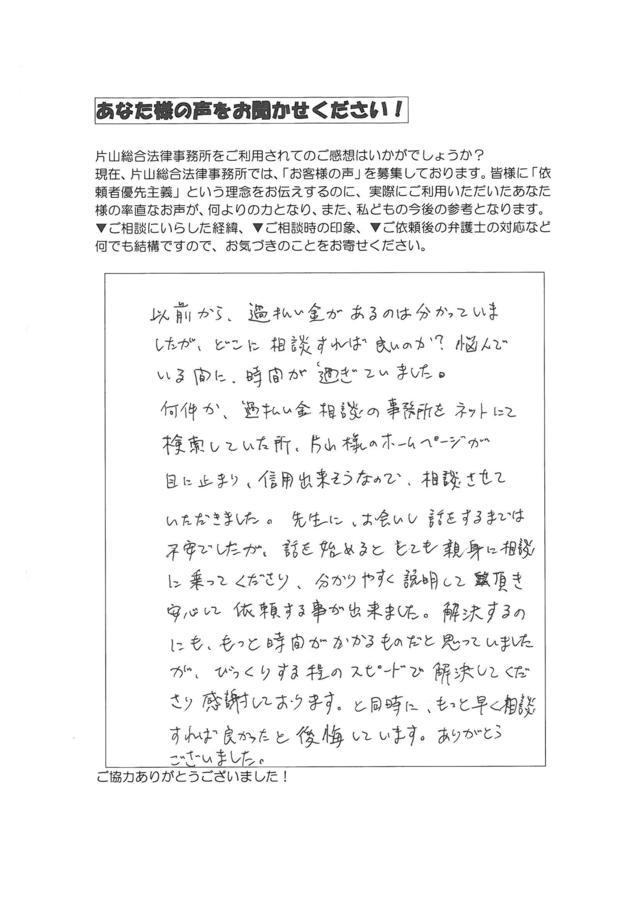 あなた様の声をお聞かせください！
片山総合法律事務所をご利用されてのご感想はいかがでしょうか？
現在、片山総合法律事務所では、「お客様の声」を募集しております。皆様に「依
頼者優先主義」という理念をお伝えするのに、実際にご利用いただいたあなた
様の率直なお声が、何よりの力となり、また、私どもの今後の参考となります。
▼ご相談にいらした経緯、▼ご相談時の印象、▼ご依頼後の弁護士の対応など
何でも結構ですので、お気づきのことをお寄せください。
以前から、過払い金があるのは分かっていま
したが、どこに相談すれば良いのか？悩んで
いる間に、時間が過ぎていました。
何件か、過払い金相談の事務所をネットにて
検索していた所、片山様のホームページが
目に止まり、信用出来そうなので、相談させて
いただきました。先生に、お会いし話をするまでは
不安でしたが、話を始めるととても親身に相談
に乗ってくださり、分かりやすく説明して頂き
安心して依頼する事が出来ました。解決するの
にも、もっと時間がかかるものだと思っていました
が、びっくりする程のスピードで解決してくだ
さり感謝しております。と同時に、もっと早く相談
すれば良かったと後悔しています。ありがとう
ございました。
ご協力ありがとうございました！